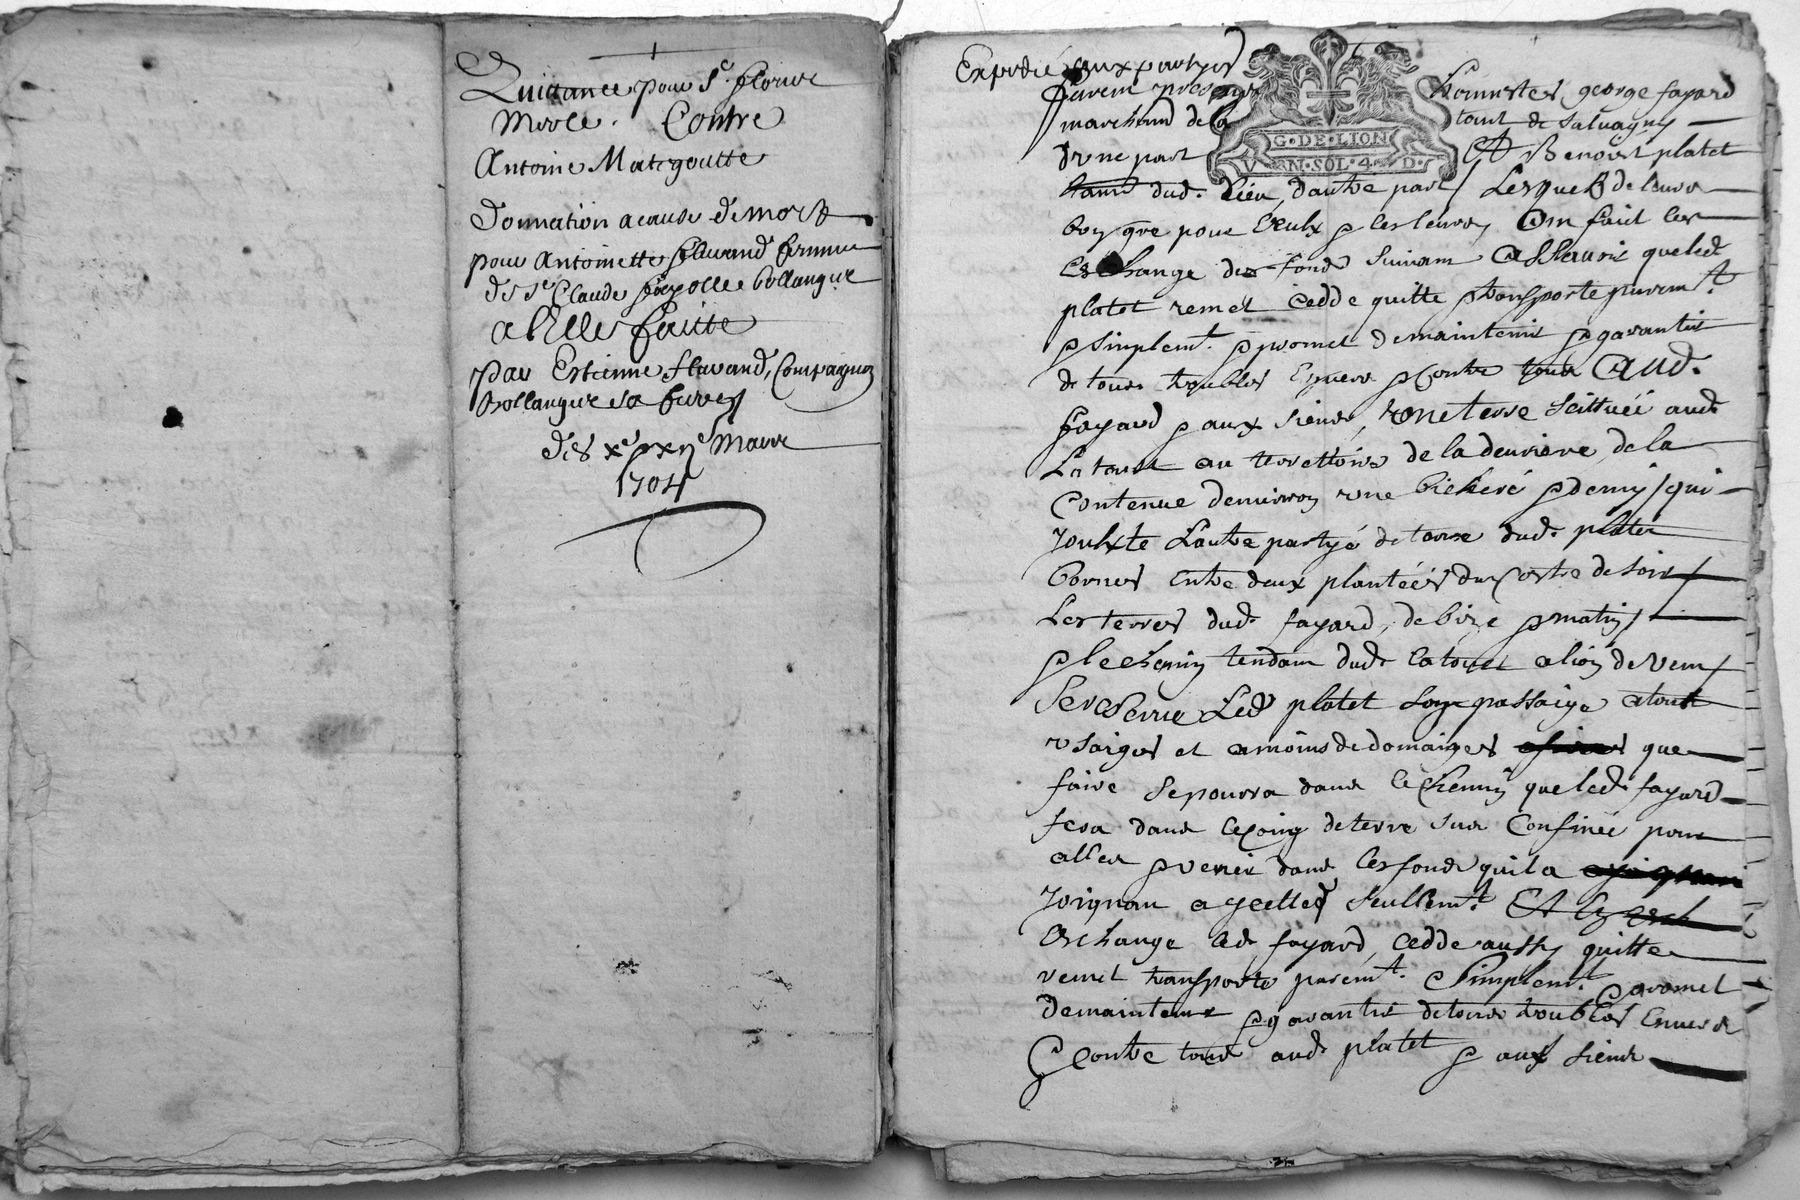 Quittance pour Sr
Contre
Antoine Mategoutte
Donnation a cause de mort
pour Antoinette flavand femme
de Sr Claude bollangier
a Elle faitte
par Estienne flavand, Compagnon
bollangier
des xe et mars
1704
Expedié aux partyes
Furent presens honnestes george fayard
marchand de la tour de salvagny
d'une part Et Benoist platet
dud. lieu, d'autre part Lesquels de leurs
bon gré pour Eeulx & les leurs, Ont faict les
Eschange des fonds suivant Assavoir que led
platet remet cedde quitte & transporte puremt.
& simplemt. & promet de maintenir & garantir
de tous troubles Envers & Contre tous Aud.
fayard & aux siens, une terre scittuée aud
La tour au terrettoire de la de la
Contenue d'environ une bicherée & demy qui
Jouxte L'autre partye de terre dud. platet
bornes entre deux plantées du Costre de soir
Les terres dud. fayard, de bize & matin
& le chemin tendant dud. la tour a lion de vent
Se reserve Led platet son passaige a tout
usaiges et a moins de domaiges que
faire se pourra dans le chemin que led. fayard
fera dans le coing de terre sus Confinée pour
aller & venir dans les fonds qu'il a
Joignant a ycelles seullemt. Et
Eschange led. fayard, cedde aussy quitte
remet transporte puremt. & Simplemt. & promet
de maintenir & garantir de tous troubles Envers
& Contre tous aud. platet & aux siens
G·DE·LION
SOL·4·D·